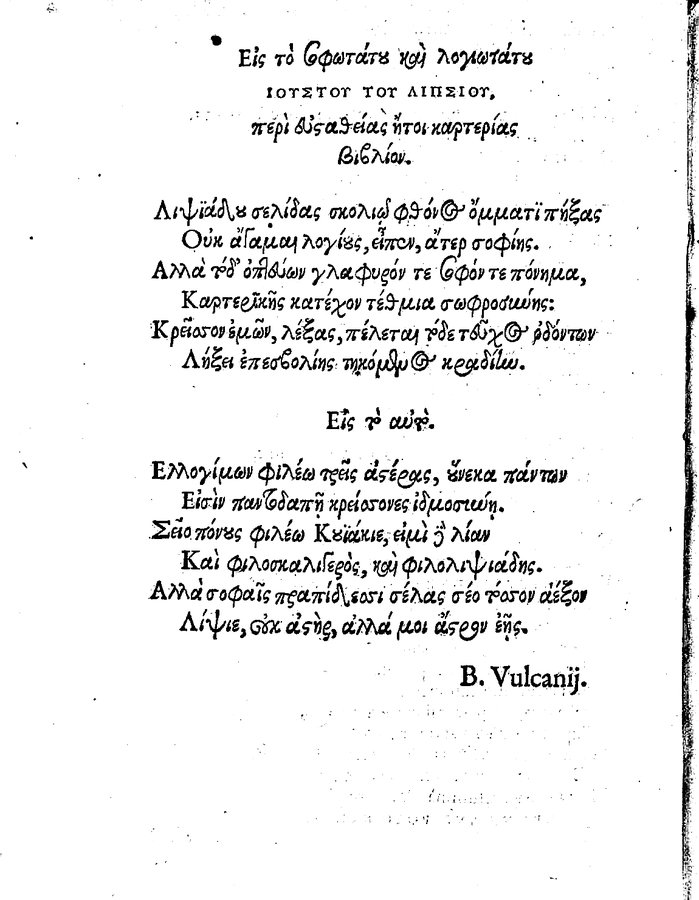 Εἰς τὸ σοφωτάτου καὶ λογιωτάτου
ΙΟΥΣΤΟΥ ΤΟΥ ΛΙΠΣΙΟΥ,
περὶ εὐσταθείας ἤτοι καρτερίας
βιβλίον.
Λιψϊάδου σελίδας σκολιῷ φθόνος ὄμματι πήξας
Οὐκ ἄγαμαι λογίους, εἶπεν, ἄτερ σοφίης.
Αλλὰ τόδ' ὀπιδὼν γλαφυρόν τε σοφόν τε πόνημα,
Καρτερικῆς κατέχον τέθμια σωφροσύνης:
Κρεῖσσον ἐμῶν, λέξας, πέλεται τόδε τεῦχος ὀδόντων
Λήξει ἐπεσβολίης τηκόμενος κραδίην.
Εἰς τὸ αὐτό.
Ελλογίμων φιλέω τρεῖς ἀστέρας, οὕνεκα πάντων
Εἰσὶν παντοδαπῇ κρείσσονες ἰδμοσύνῃ.
Σεῖο πόνους φιλέω Κυϊάκιε, εἰμὶ δὲ λίαν
Καὶ φιλοσκαλιγερὸς, καὶ φιλολιψιάδης.
Αλλὰ σοφαῖς πραπίδεσσι σέλας σέο τόσσον ἀέξον
Λίψιε, οὐκ ἀστὴρ, ἀλλά μοι ἄστρον ἔῃς.
B. Vulcanij.